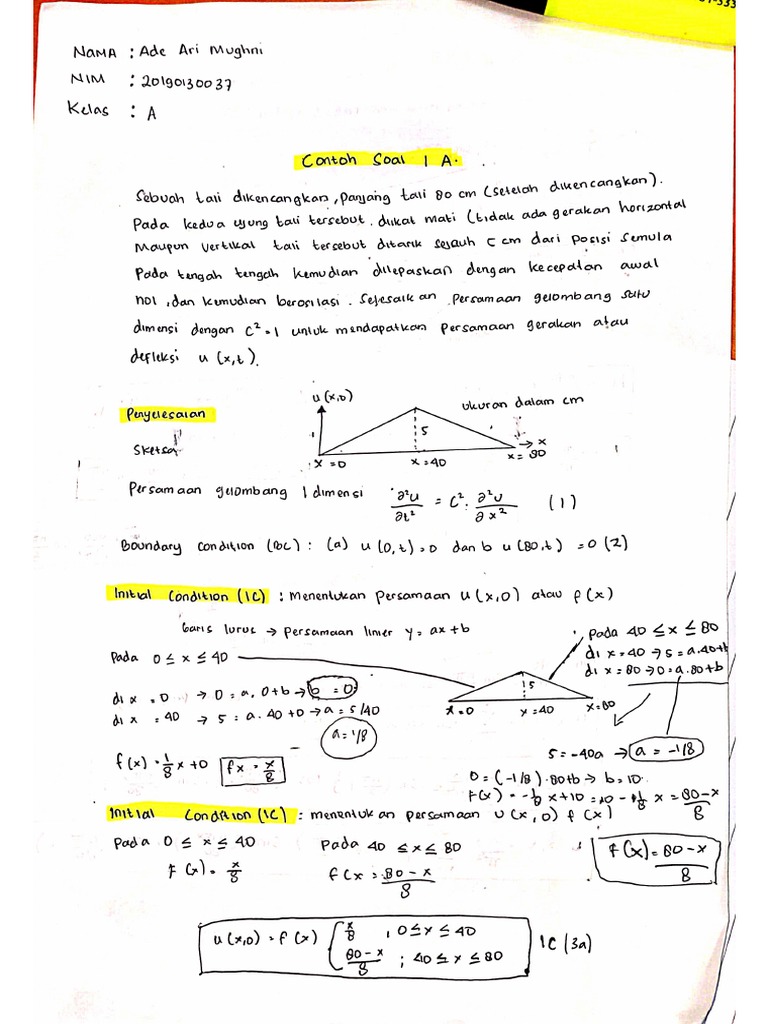 01-333
NAMA : Ade Ari Mughni
NIM : 20190130037
Kelas : A
Contoh Soal 1 A.
Sebuah tali dikencangkan, panjang tali 80 cm (setelah dikencangkan).
Pada kedua ujung tali tersebut diikat mati (tidak ada gerakan horizontal
Maupun vertikal tali tersebut ditarik sejauh 5 cm dari posisi semula
Pada tengah tengah kemudian dilepaskan dengan kecepatan awal
nol, dan kemudian berosilasi. Selesaikan persamaan gelombang satu
dimensi dengan C²=1 untuk mendapatkan persamaan gerakan atau
defleksi u (x,t).
Penyelesaian
Sketsa
u (x,0)
ukuran dalam cm
5
x
x=0
x=40
x=80
Persamaan gelombang 1 dimensi ∂²u/∂t² = C². ∂²u/∂x² (1)
Boundary Condition (BC) : (a) u (0,t)=0 dan b u(80,t) =0 (2)
Initial Condition (IC) : Menentukan Persamaan u(x,0) atau f(x)
Garis lurus → persamaan linier y= ax+b
Pada 0 ≤ x ≤ 40
di x = 0 → 0 = a. 0+b → b = 0
di x = 40 → 5 = a. 40 + 0 → a = 5/40
a = 1/8
f(x) = 1/8 x + 0
fx = x/8
5
x=0
x=40
x=80
Pada 40 ≤ x ≤ 80
di x=40 → 5 = a.40+b
di x=80 → 0=a.80+b
5=-40a → a = -1/8
0 = (-1/8) . 80+b → b=10
F(x) = -1/8 x+10 = 10 - 1/8 x = 80-x/8
Initial Condition (IC) : menentukan persamaan u(x,0) f(x)
Pada 0 ≤ x ≤ 40
F (x) = x/8
Pada 40 ≤ x ≤ 80
f(x = 80-x/8
F(x) = 80-x/8
u (x,0) = f (x) { x/8 , 0 ≤ x ≤ 40
80-x/8 ; 40 ≤ x ≤ 80
IC (3a)